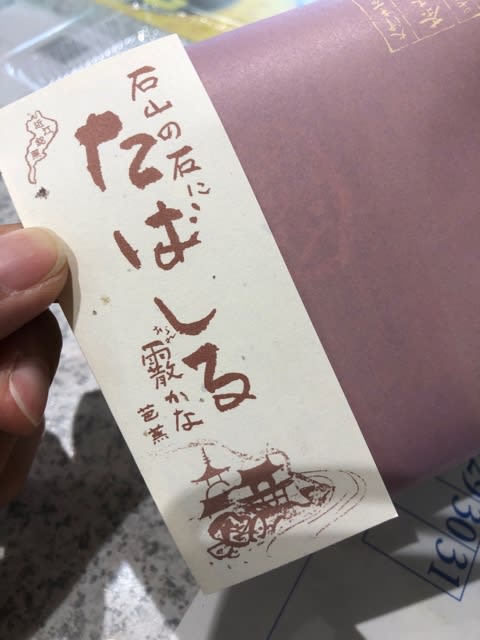 石山の石に
たばしる
霰かな
あられ
芭蕉
近江銘菓
30
31